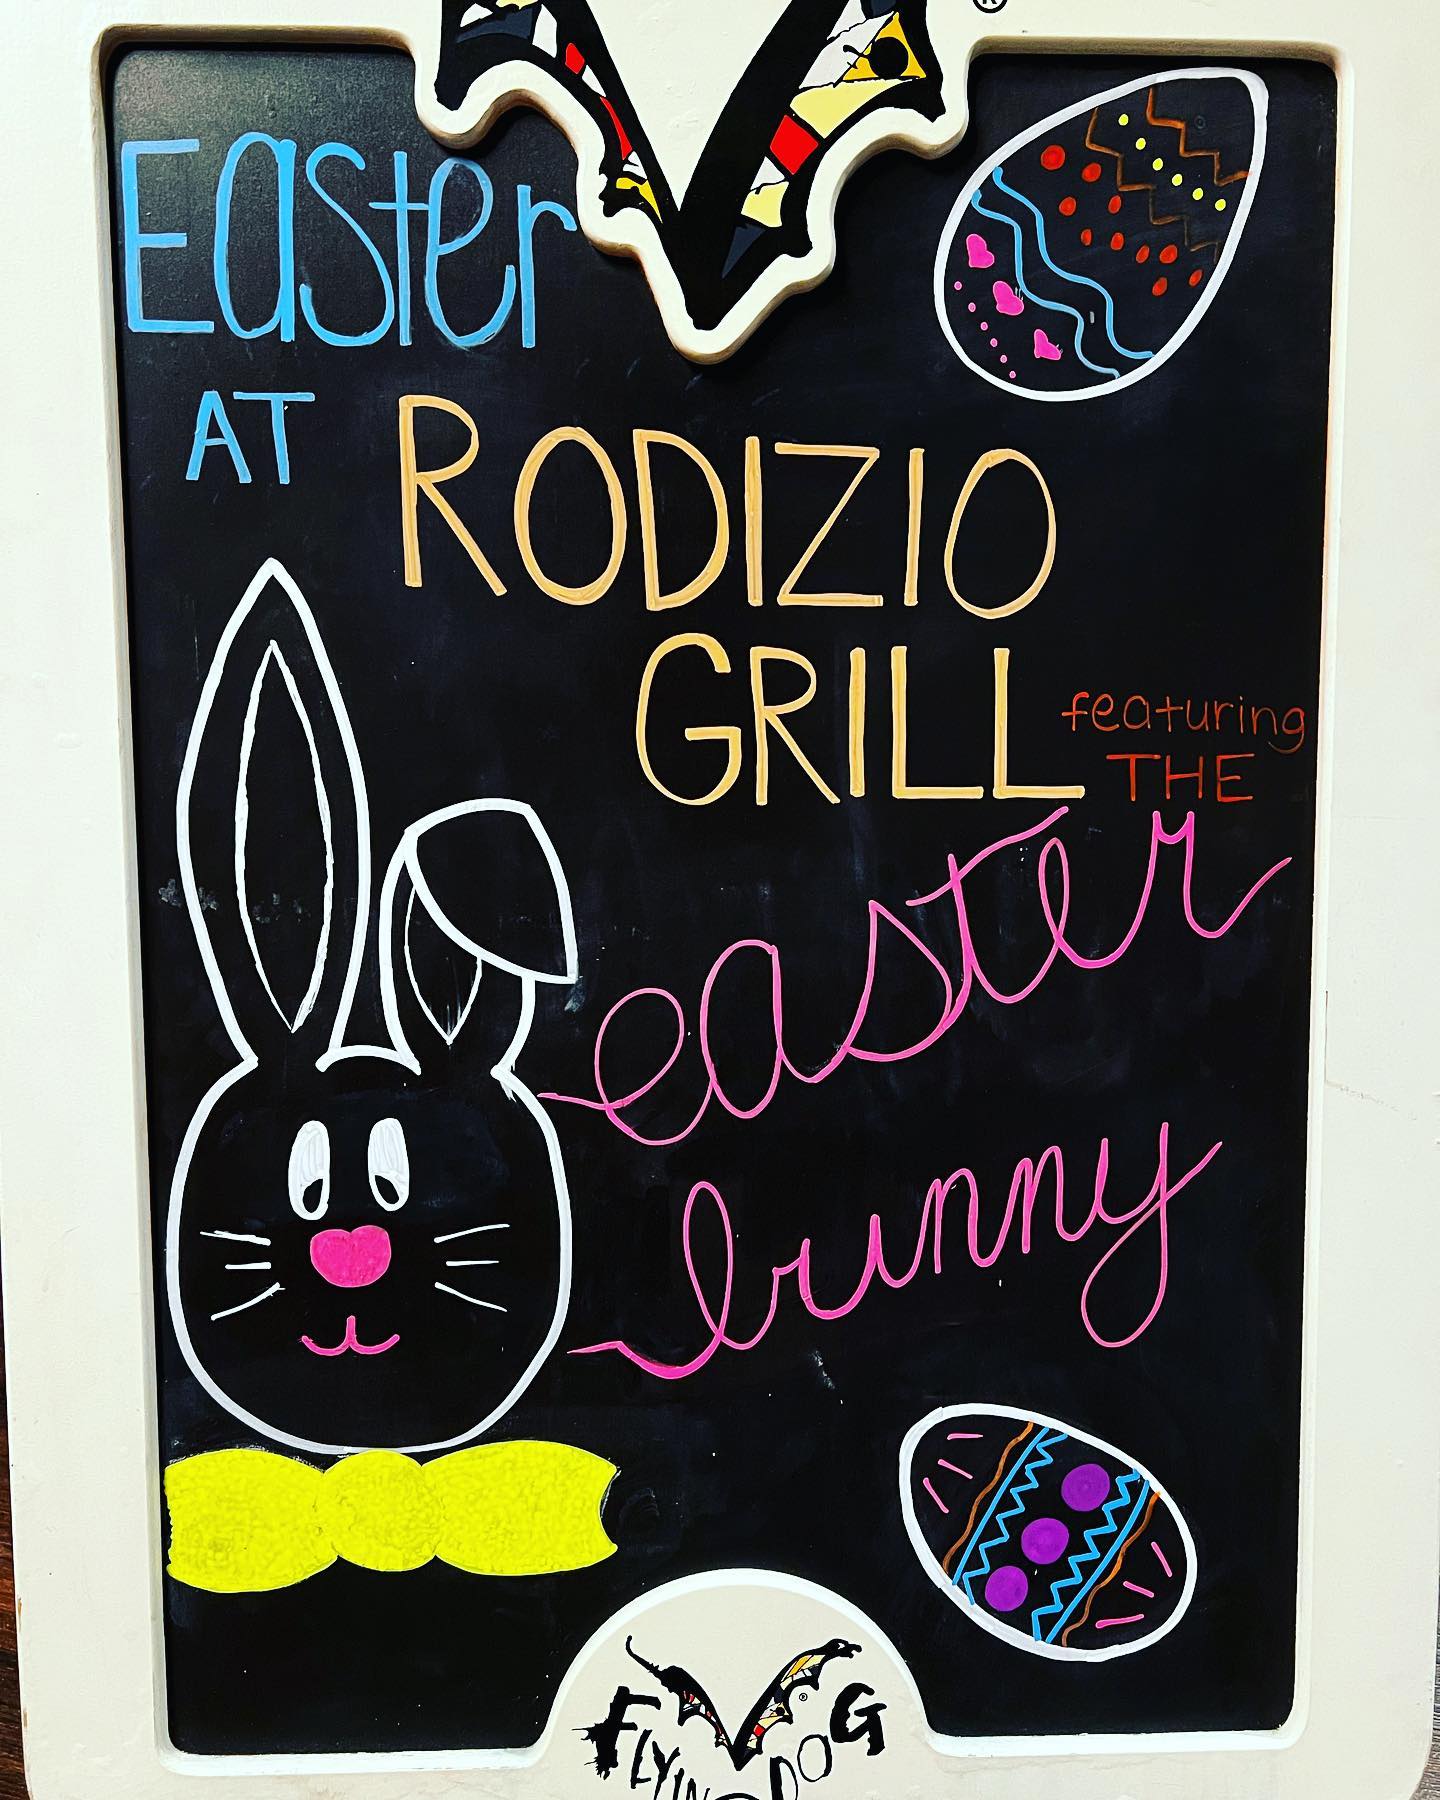 ®
Easter
AT RODIZIO
GRILL featuring
THE
easter
bunny
FLYING DOG
®